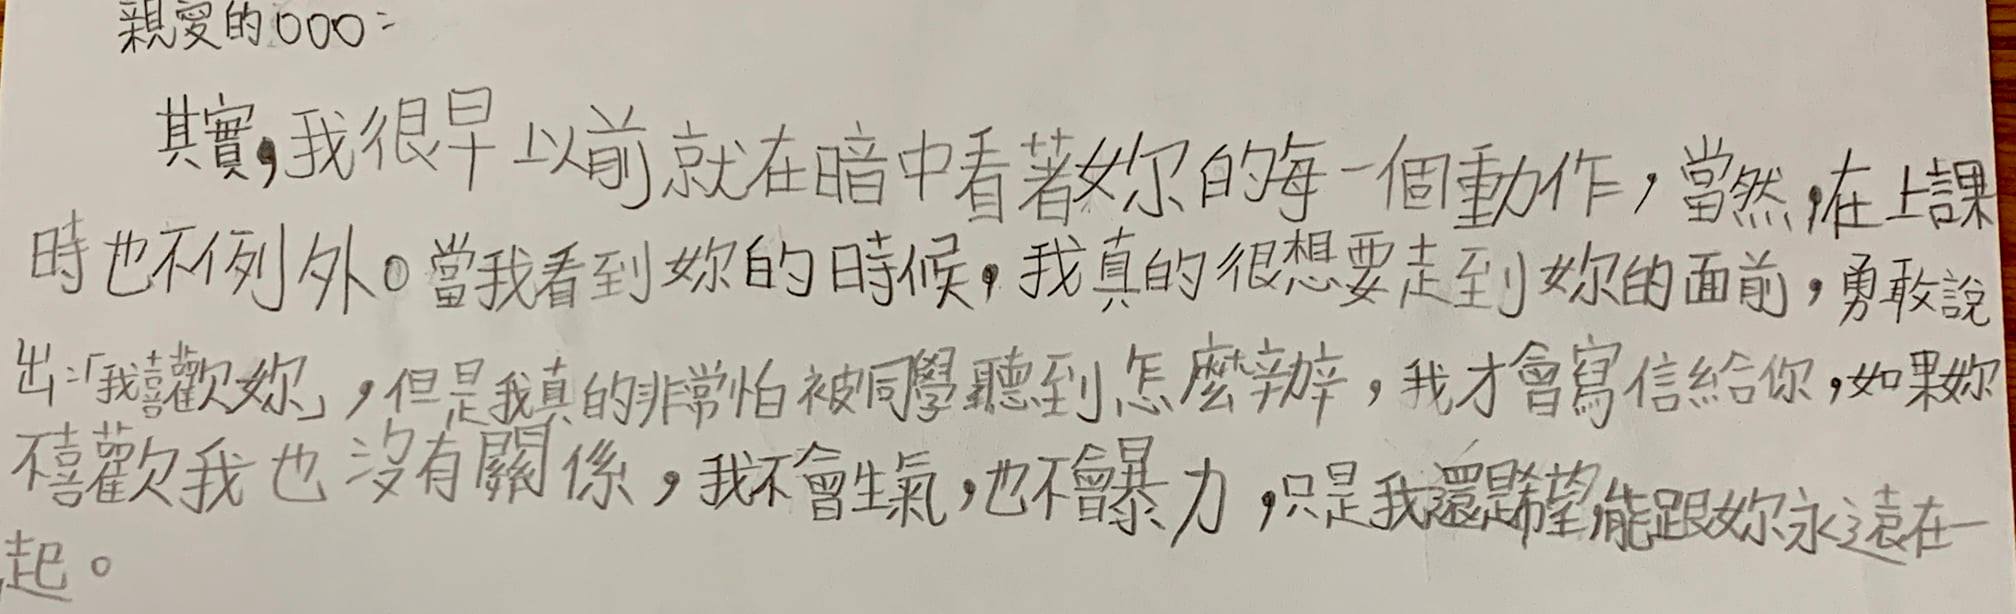 親愛的OOO：
其實，我很早以前就在暗中看著妳的每一個動作，當然，在上課
時也不例外。當我看到妳的時候，我真的很想要走到妳的面前，勇敢說
出：「我喜歡妳」，但是我真的非常怕被同學聽到怎麼辦，我才會寫信給你，如果妳
不喜歡我也沒有關係，我不會生氣，也不會暴力，只是我還是希望能跟妳永遠在一
起。